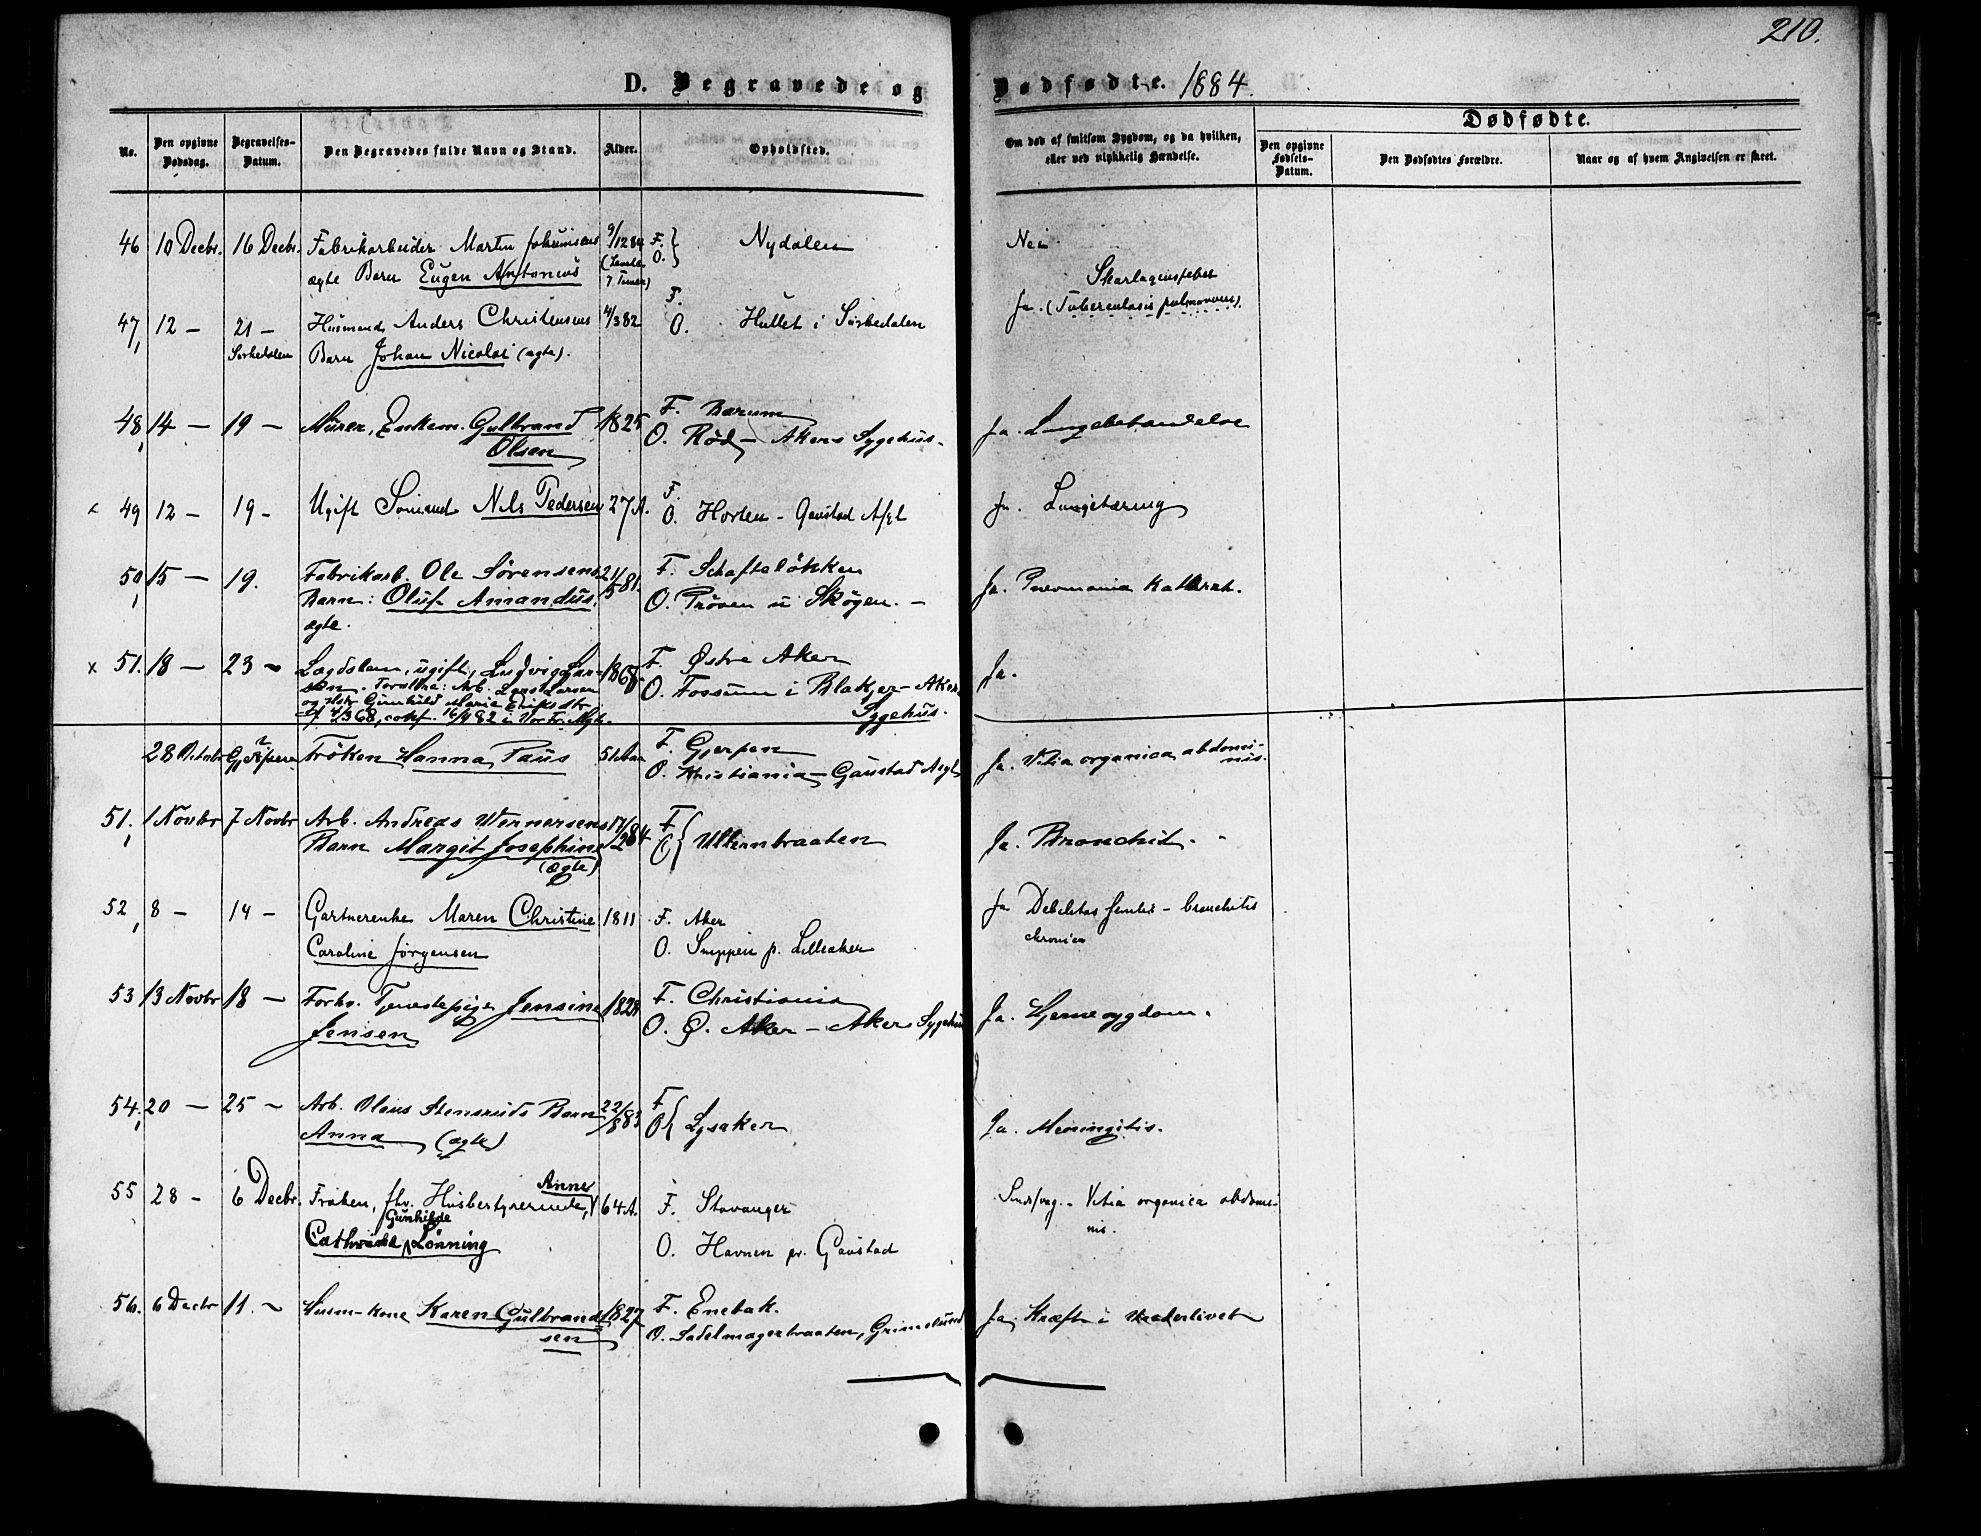 210.
D. Begravede og Dødfødte. 1884.
No.
Den opgivne Dødsdag.
Begravelses-Datum.
Den Begravedes fulde Navn og Stand.
Alder.
Opholdsted.
Om død af smitsom Sygdom, og da hvilken, eller ved ulykkelig Hændelse.
Dødfødte.
Den opgivne Fødsels-Datum.
Den Dødfødtes Forældre.
Naar og af hvem Angivelsen er skeet.
46 10 Decbr. 16 Decbr. Fabrikarbeider Martin Johannsens 9/12 84 F. } Nydalen Nei
ægte Barn Eugen Antonius (Levede 7 Timer) O.
Skarlagensfeber
47, 12 – 21 – Husmand Anders Christensens 4/3 82 F. Ja. (Tuberculosis pulmonum).
Sørkedalen Barn Johan Nicolai (ægte). O. Hullet i Sørkedalen
48, 14 – 19 – Murer, Enkem. Gulbrand 1825 F. Bærum
Olsen O. Rød – Akers Sygehus. Ja.
x 49 12 – 19 – Ugift Sömand Nils Pedersen 27 A. F.
O. Horten – Gaustad Asyl Ja. Lungetæring
50, 15 – 19. Fabrikarb. Ole Sörensens 21/5 81. F. Schafteløkken
Barn: Oluf Amandus. O. Prøven u Skøyen. – Ja. Pneumonia Katarrh.
ægte.
x 51. 18 – 23 – Lægdslem, ugift, Ludvig Lar- 1868 F. Østre Aker Ja.
sen. Forældre: Arb. Lars Larsen O. Fossum i Blakjer – Akers
og Hstr Gunhild Marie Eriksdtr Sygehus.
4/3 68, conf. 16/4 82 i
28 Octobr Gjerpen Fröken Hanna Paus 51 Aar F. Gjerpen
O. Kristiania – Gaustad Asyl Ja. Vitia organica abdomi-
nis.
51, 1 Novbr 7 Novbr Arb. Andreas Wernersens 17/2 84 F. O. { Ullernbraaten Ja. Bronchit.
Barn Margit Josephine
(ægte)
52, 8 – 14 – Gartnerenke Maren Christine 1811 F. Aker Ja Debilitas senilis – bronchitis
Caroline Jørgensen O. Snippen p. Lilleaker chronica
53 13 Novbr 18 – Forhv. Tjenestepige Jensine 1828 F. Christiania
Jensen O. Ø. Aker – Akers Sygehus Ja. Hjernesygdom.
54, 20 – 25 – Arb. Olaus Stensruds Barn 22/8 83 F. O. { Lysaker Ja. Meningitis.
Anna (ægte)
55 28 – 6 Decbr. Frøken, fhv. Husbestyrerinde, Anne 64 A. F. Stavanger Sindssvag. – Vitia organica abdomi-
Gunhilde nis.
Cathrine Lönning O. Havnen pr. Gaustad
56. 6 Decbr 11. – Husm-kone Karen Gulbrand- 1827 F. Enebak. Ja. Kræft i Underlivet
sen O. Sadelmagerbraaten, Grimelund